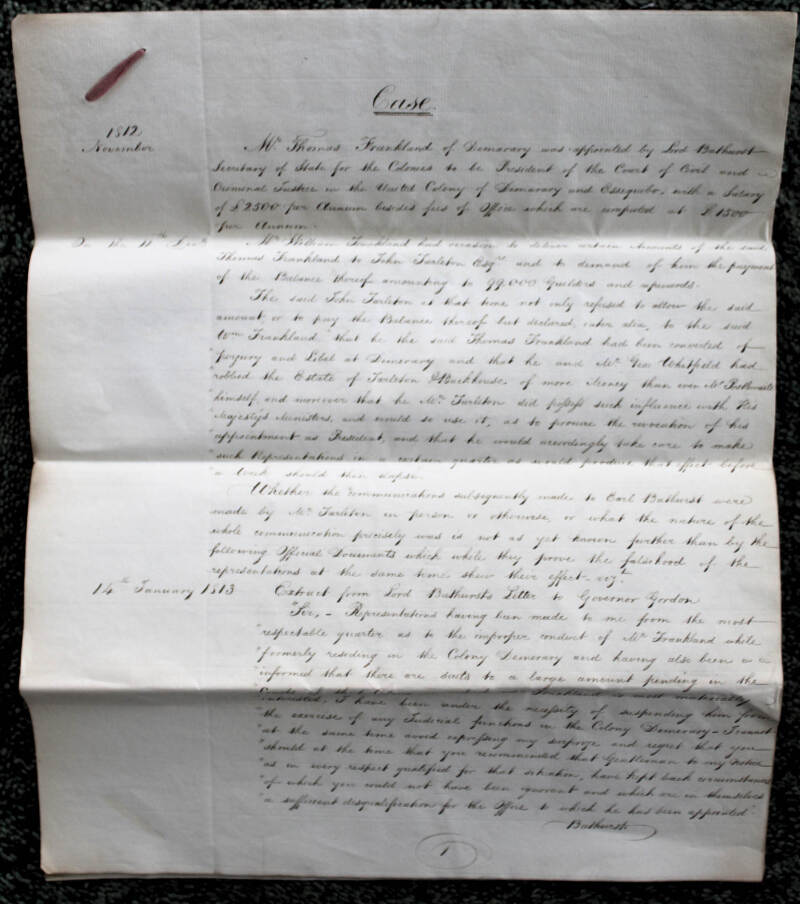 Case.
1812
November
Mr. Thomas Frankland of Demarary was appointed by Lord Bathurst
Secretary of State for the Colonies to be President of the Court of Civil and
Criminal Justice in the United Colony of Demarary and Essequebo, with a Salary
of £2500 per Annum besides fees of Office which are computed at £1500
per Annum.
On the 11th Decr.
Mr. William Frankland had occasion to deliver certain Accounts of the said
Thomas Frankland to John Tarleton Esqre. and to demand of him the payment
of the Balance thereof amounting to 99,000 Guilders and upwards.
The said John Tarleton at that time not only refused to allow the said
amount, or to pay the Balance thereof but declared, inter alia, to the said
Wm. Frankland, that he the said Thomas Frankland had been convicted of
"perjury and Libel at Demerary and that he and Mr. Geo. Whitfield had
"robbed the Estate of Tarleton & Backhouse, of more Money than even Mr.
"himself, and moreover that he Mr. Tarleton did possess such influence with His
"Majesty's Ministers, and would so use it, as to procure the revocation of his
"appointment as President, and that he would accordingly take care to make
"such Representations in a certain quarter as would produce that effect before
"a Week should then elapse.
Whether the communications subsequently made to Earl Bathurst were
made by Mr. Tarleton in person or otherwise, or what the nature of the
whole communication precisely was is not as yet known further than by the
following Official Documents which while they prove the falsehood of the
representations at the same time shew their effect. vizt.
14th January 1813
Extract from Lord Bathurst's Letter to Governor Gordon
"Sir, - Representations having been made to me from the most
"respectable quarter as to the improper conduct of Mr. Frankland while
"formerly residing in the Colony Demerary and having also been
"informed that there are suits to a large amount pending in the
"Courts of Frankland is most materially
"interested, I have been under the necessity of suspending him from
"the exercise of any Judicial functions in the Colony Demerary - I cannot
"at the same time avoid expressing my surprize and regret that you
"should at the time that you recommended that Gentleman to my notice
"as in every respect qualified for that situation, have kept back circumstances
"of which you could not have been ignorant and which are in themselves
"a sufficient disqualification for the Office to which he has been appointed.
Bathurst
1